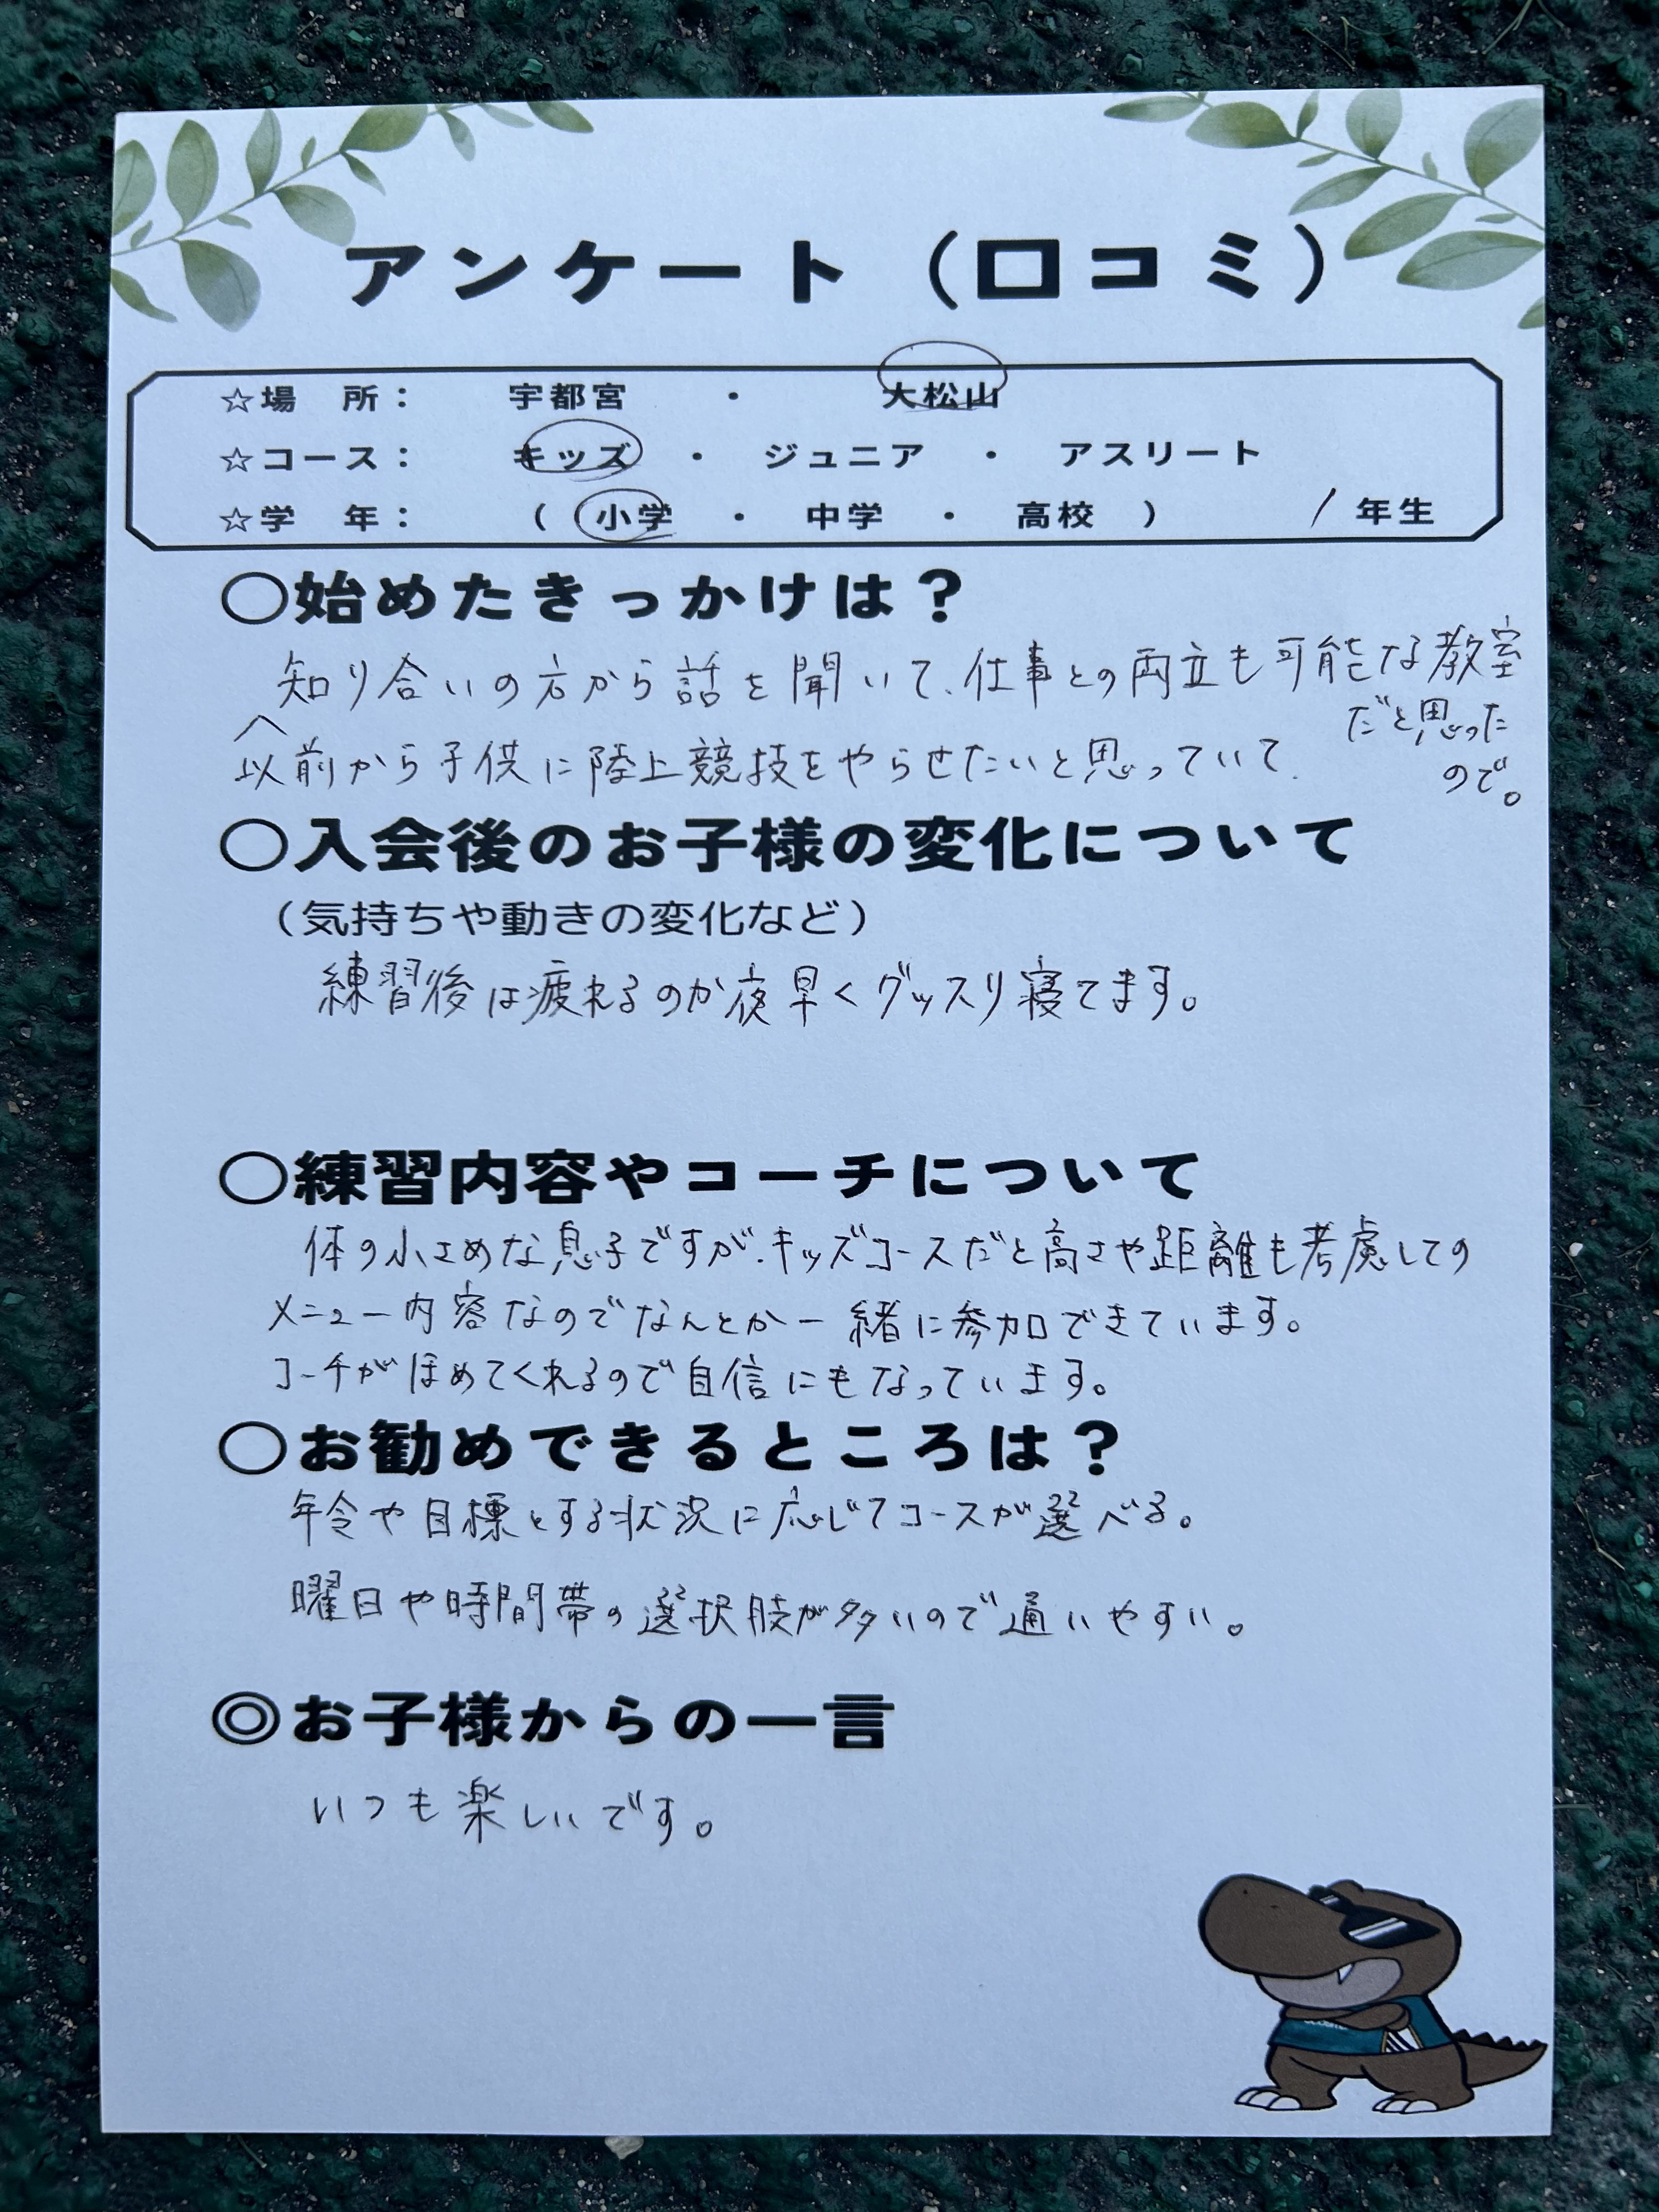 アンケート（口コミ）
☆場　所：　宇都宮　・　大松山
☆コース：　キッズ　・　ジュニア　・　アスリート
☆学　年：　（　小学　・　中学　・　高校　）　1　年生
○始めたきっかけは？
知り合いの方から話を聞いて、仕事との両立も可能な教室
だと思った
ので。
以前から子供に陸上競技をやらせたいと思っていて、
○入会後のお子様の変化について
（気持ちや動きの変化など）
練習後は疲れるのか夜早くグッスリ寝てます。
○練習内容やコーチについて
体の小さめな息子ですが、キッズコースだと高さや距離も考慮しての
メニュー内容なのでなんとか一緒に参加できています。
コーチがほめてくれるので自信にもなっています。
○お勧めできるところは？
年令や目標とする状況に応じてコースが選べる。
曜日や時間帯の選択肢が多いので通いやすい。
◎お子様からの一言
いつも楽しいです。